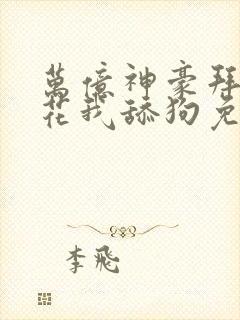 萬億神豪拜
花我舔狗免
李飛